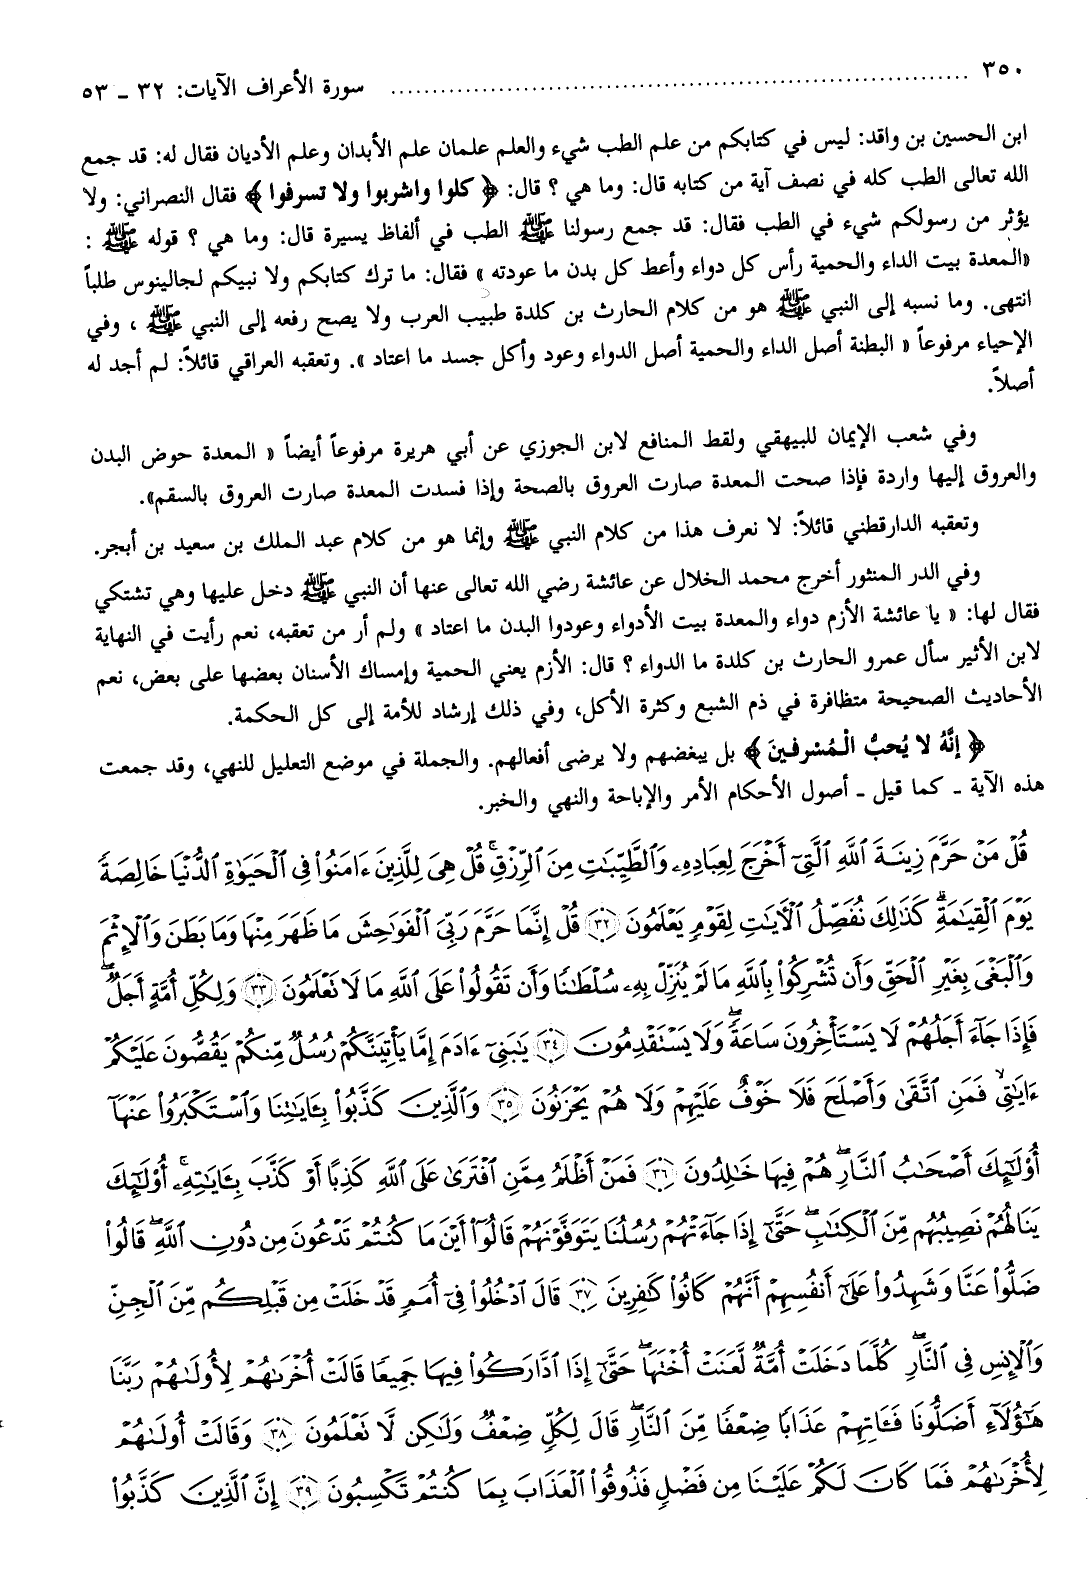 ٣٥٠ ........................................ سورة الأعراف الآيات: ٣٢ ـ ٥٣
ابن الحسين بن واقد: ليس في كتابكم من علم الطب شيء والعلم علمان علم الأبدان وعلم الأديان فقال له: قد جمع
الله تعالى الطب كله في نصف آية من كتابه قال: وما هي ؟ قال: ﴿ كلوا واشربوا ولا تسرفوا ﴾ فقال النصراني: ولا
يؤثر من رسولكم شيء في الطب فقال: قد جمع رسولنا ﷺ الطب في ألفاظ يسيرة قال: وما هي ؟ قوله ﷺ :
«المعدة بيت الداء والحمية رأس كل دواء وأعط كل بدن ما عودته » فقال: ما ترك كتابكم ولا نبيكم لجالينوس طلباً
انتهى. وما نسبه إلى النبي ﷺ هو من كلام الحارث بن كلدة طبيب العرب ولا يصح رفعه إلى النبي ﷺ ، وفي
الإحياء مرفوعاً « البطنة أصل الداء والحمية أصل الدواء وعود وأكل جسد ما اعتاد ». وتعقبه العراقي قائلاً: لم أجد له
أصلاً.
وفي شعب الإيمان للبيهقي ولقط المنافع لابن الجوزي عن أبي هريرة مرفوعاً أيضاً « المعدة حوض البدن
والعروق إليها واردة فإذا صحت المعدة صارت العروق بالصحة وإذا فسدت المعدة صارت العروق بالسقم».
وتعقبه الدارقطني قائلاً: لا نعرف هذا من كلام النبي ﷺ وإنما هو من كلام عبد الملك بن سعيد بن أبجر.
وفي الدر المنثور أخرج محمد الخلال عن عائشة رضي الله تعالى عنها أن النبي ﷺ دخل عليها وهي تشتكي
فقال لها: « يا عائشة الأزم دواء والمعدة بيت الأدواء وعودوا البدن ما اعتاد » ولم أر من تعقبه، نعم رأيت في النهاية
لابن الأثير سأل عمرو الحارث بن كلدة ما الدواء ؟ قال: الأزم يعني الحمية وإمساك الأسنان بعضها على بعض، نعم
الأحاديث الصحيحة متظافرة في ذم الشبع وكثرة الأكل، وفي ذلك إرشاد للأمة إلى كل الحكمة.
﴿ إنَّهُ لا يُحبُّ الْمُسْرفينَ ﴾ بل يبغضهم ولا يرضى أفعالهم. والجملة في موضع التعليل للنهي، وقد جمعت
هذه الآية ـ كما قيل ـ أصول الأحكام الأمر والإباحة والنهي والخبر.
قُلْ مَنْ حَرَّمَ زِينَةَ ٱللَّهِ ٱلَّتِيٓ أَخْرَجَ لِعِبَادِهِۦ وَٱلطَّيِّبَٰتِ مِنَ ٱلرِّزْقِۚ قُلْ هِيَ لِلَّذِينَ ءَامَنُوا۟ فِي ٱلْحَيَوٰةِ ٱلدُّنْيَا خَالِصَةً
يَوْمَ ٱلْقِيَٰمَةِۗ كَذَٰلِكَ نُفَصِّلُ ٱلْأٓيَٰتِ لِقَوْمٍ يَعْلَمُونَ ﴿٣٢﴾ قُلْ إِنَّمَا حَرَّمَ رَبِّيَ ٱلْفَوَٰحِشَ مَا ظَهَرَ مِنْهَا وَمَا بَطَنَ وَٱلْإِثْمَ
وَٱلْبَغْيَ بِغَيْرِ ٱلْحَقِّ وَأَن تُشْرِكُوا۟ بِٱللَّهِ مَا لَمْ يُنَزِّلْ بِهِۦ سُلْطَٰنًا وَأَن تَقُولُوا۟ عَلَى ٱللَّهِ مَا لَا تَعْلَمُونَ ﴿٣٣﴾ وَلِكُلِّ أُمَّةٍ أَجَلٌۖ
فَإِذَا جَآءَ أَجَلُهُمْ لَا يَسْتَأْخِرُونَ سَاعَةًۖ وَلَا يَسْتَقْدِمُونَ ﴿٣٤﴾ يَٰبَنِيٓ ءَادَمَ إِمَّا يَأْتِيَنَّكُمْ رُسُلٌ مِّنكُمْ يَقُصُّونَ عَلَيْكُمْ
ءَايَٰتِيۙ فَمَنِ ٱتَّقَىٰ وَأَصْلَحَ فَلَا خَوْفٌ عَلَيْهِمْ وَلَا هُمْ يَحْزَنُونَ ﴿٣٥﴾ وَٱلَّذِينَ كَذَّبُوا۟ بِـَٔايَٰتِنَا وَٱسْتَكْبَرُوا۟ عَنْهَآ
أُو۟لَٰٓئِكَ أَصْحَٰبُ ٱلنَّارِۖ هُمْ فِيهَا خَٰلِدُونَ ﴿٣٦﴾ فَمَنْ أَظْلَمُ مِمَّنِ ٱفْتَرَىٰ عَلَى ٱللَّهِ كَذِبًا أَوْ كَذَّبَ بِـَٔايَٰتِهِۦٓۚ أُو۟لَٰٓئِكَ
يَنَالُهُمْ نَصِيبُهُم مِّنَ ٱلْكِتَٰبِۖ حَتَّىٰٓ إِذَا جَآءَتْهُمْ رُسُلُنَا يَتَوَفَّوْنَهُمْ قَالُوٓا۟ أَيْنَ مَا كُنتُمْ تَدْعُونَ مِن دُونِ ٱللَّهِۖ قَالُوا۟
ضَلُّوا۟ عَنَّا وَشَهِدُوا۟ عَلَىٰٓ أَنفُسِهِمْ أَنَّهُمْ كَانُوا۟ كَٰفِرِينَ ﴿٣٧﴾ قَالَ ٱدْخُلُوا۟ فِيٓ أُمَمٍ قَدْ خَلَتْ مِن قَبْلِكُم مِّنَ ٱلْجِنِّ
وَٱلْإِنسِ فِي ٱلنَّارِۖ كُلَّمَا دَخَلَتْ أُمَّةٌ لَّعَنَتْ أُخْتَهَاۖ حَتَّىٰٓ إِذَا ٱدَّارَكُوا۟ فِيهَا جَمِيعًا قَالَتْ أُخْرَىٰهُمْ لِأُولَىٰهُمْ رَبَّنَا
هَٰٓؤُلَآءِ أَضَلُّونَا فَـَٔاتِهِمْ عَذَابًا ضِعْفًا مِّنَ ٱلنَّارِۖ قَالَ لِكُلٍّ ضِعْفٌ وَلَٰكِن لَّا تَعْلَمُونَ ﴿٣٨﴾ وَقَالَتْ أُولَىٰهُمْ
لِأُخْرَىٰهُمْ فَمَا كَانَ لَكُمْ عَلَيْنَا مِن فَضْلٍ فَذُوقُوا۟ ٱلْعَذَابَ بِمَا كُنتُمْ تَكْسِبُونَ ﴿٣٩﴾ إِنَّ ٱلَّذِينَ كَذَّبُوا۟